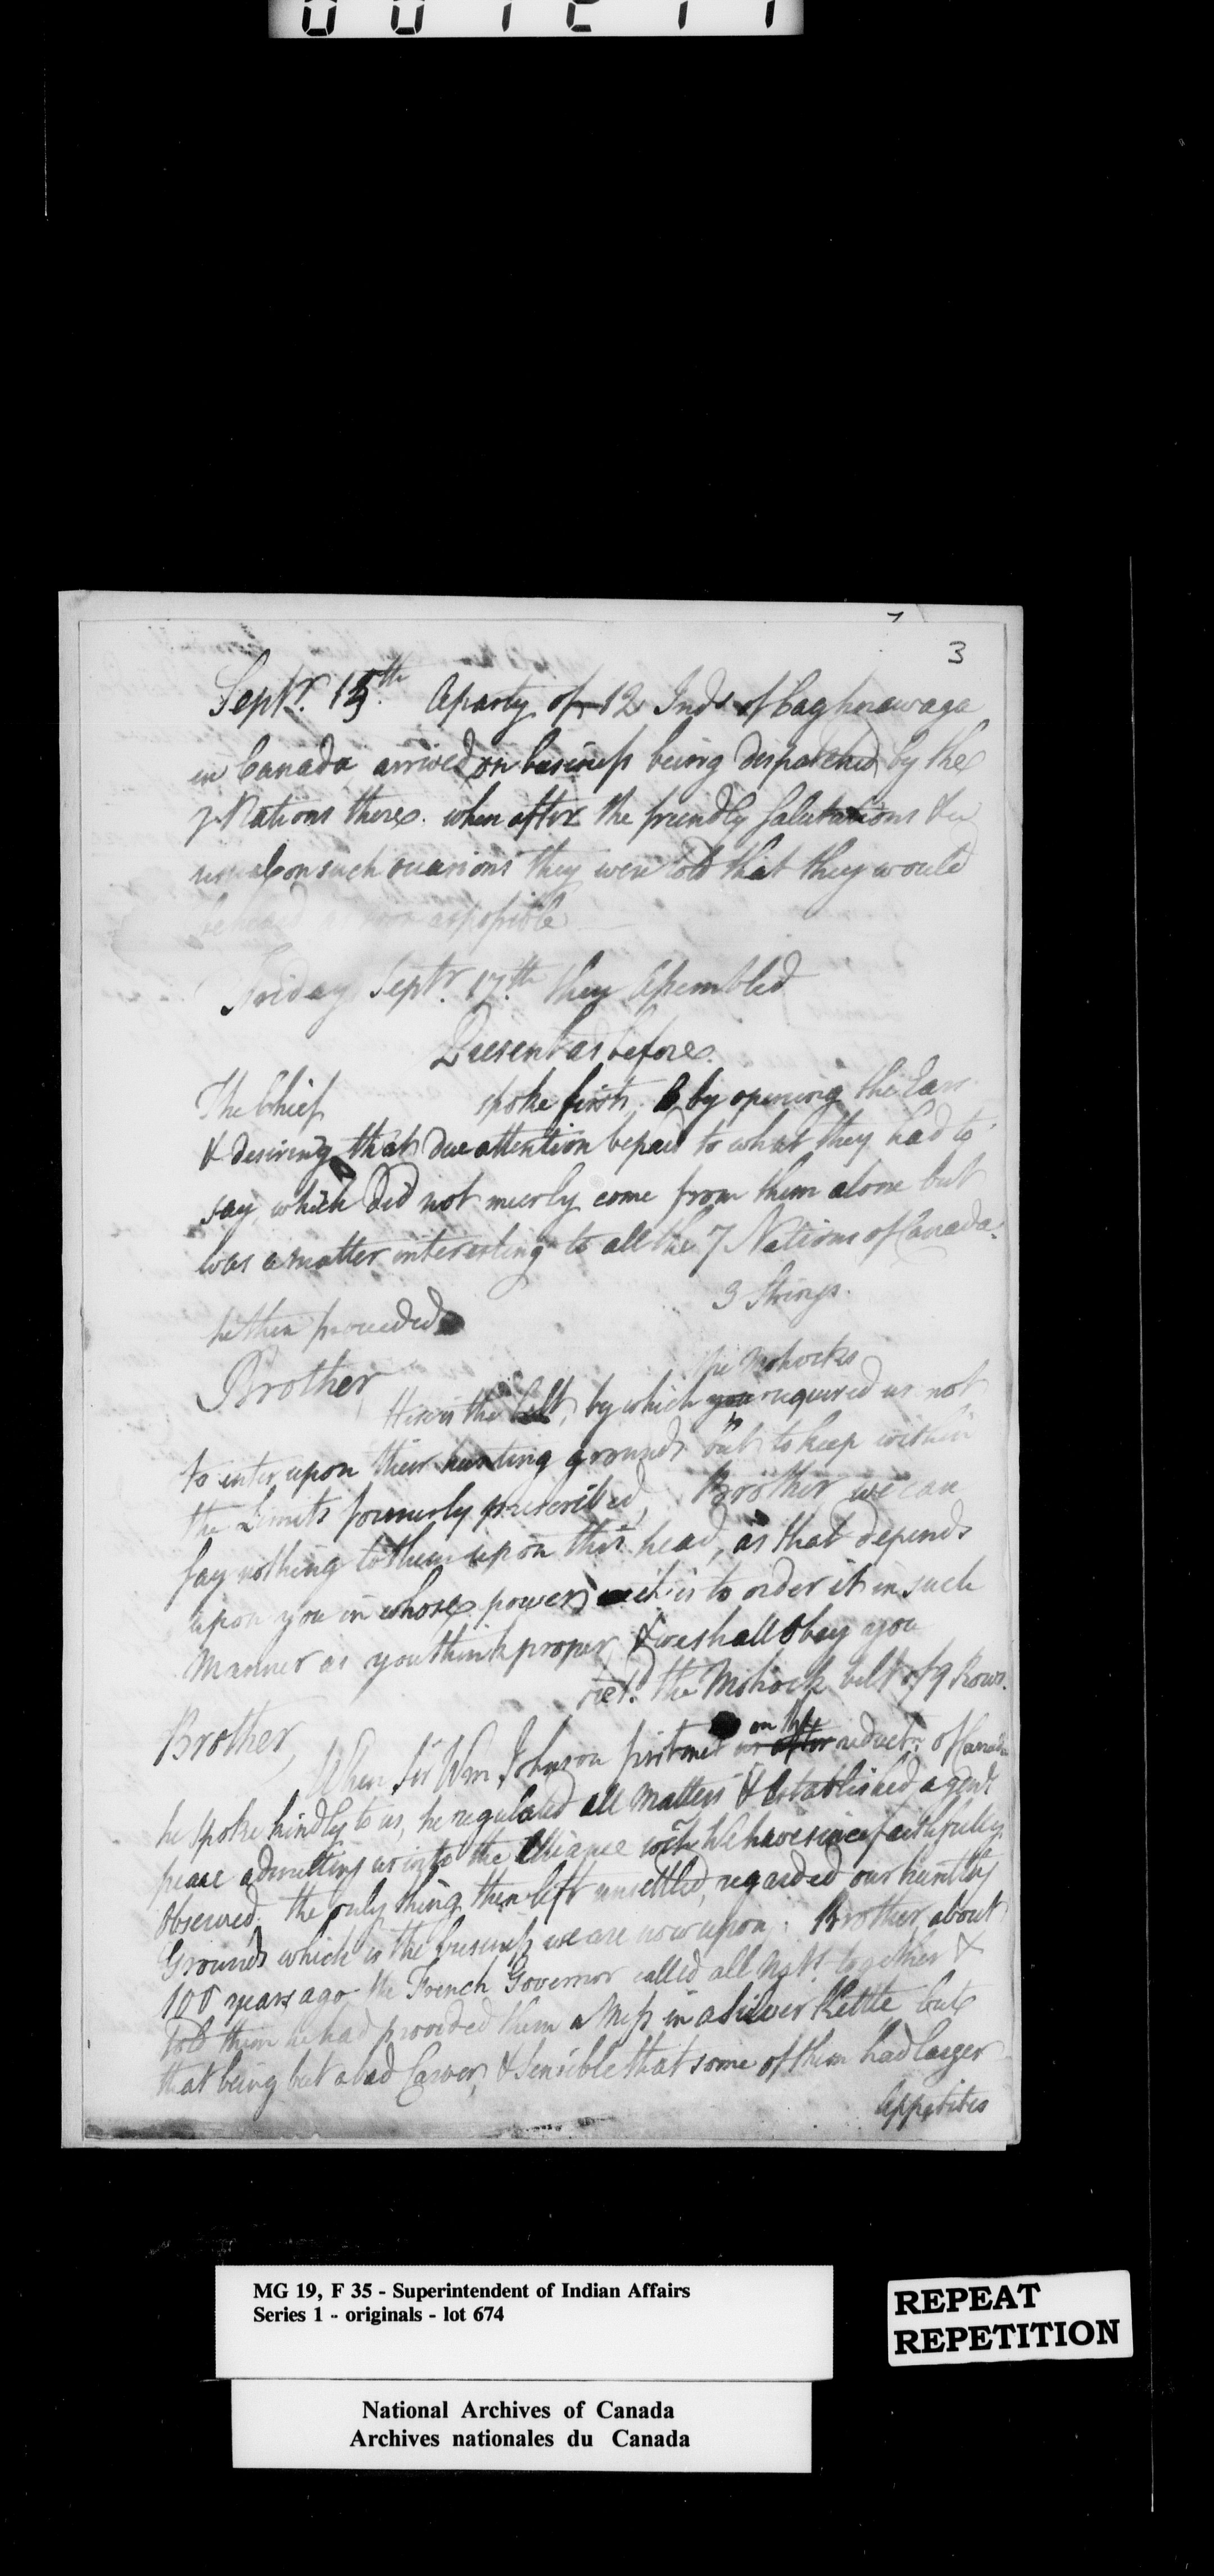 7
3
Septr. 15th A party of 12 Inds of Caghnawaga
in Canada arrived on business being dispatched by the
7 Nations there. when after the friendly Salutations &ca
usual on such occasions they were told that they would
be heard as soon as possible
Friday Septr. 17th they Assembled
Present as before.
The Chief spoke first, by opening the Ears
& desiring that due attention be paid to what they had to
say, which did not meerly come from them alone but
was a matter interesting to all the 7 Nations of Canada.
3 Strings.
he then proceeded
Brother
the Mohocks
Here is the belt, by which you required us not
to enter upon their hunting grounds but to keep within
the Limits formerly prescribed, Brother we can
say nothing to them upon this head, as that depends
upon you in whose power it is to order it in such
Manner as you think proper & we shall obey you
ret.d the Mohock belt of 9 Rows.
Brother
on the
When Sir Wm Johnson first met us after reductn. of Canada
he spoke kindly to us, he regulated all Matters & Established a genl
peace admitting us into the Alliance wch We have since faithfully
Observed. the only thing then left unsettled, regarded our hunting
Grounds which is the business we are now upon. Brother, about
100 years ago the French Governor called all Nats. together &
told them he had provided them a Mess in a Silver Kettle but
that being but a bad Carver, & Sensible that some of them had larger
Appetites
MG 19, F 35 - Superintendent of Indian Affairs
Series 1 - originals - lot 674
REPEAT
REPETITION
National Archives of Canada
Archives nationales du Canada